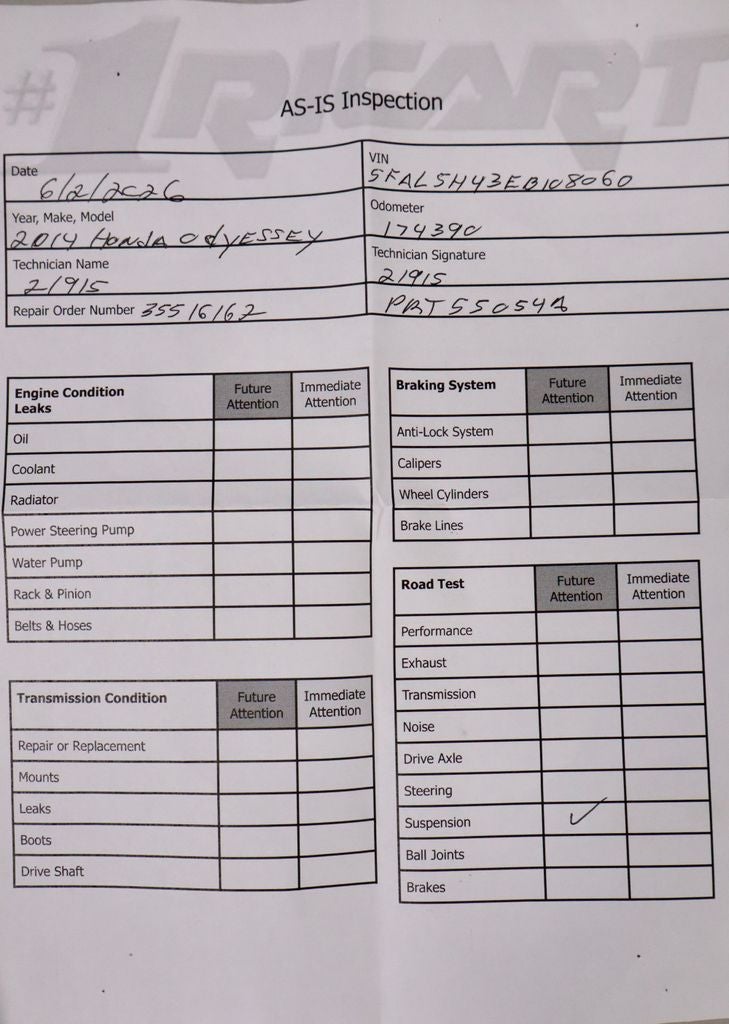 #1 RICART
AS-IS Inspection
Date
6/2/2026
VIN
5FAL5H43EB108060
Year, Make, Model
2014 Honda OdYESSEY
Odometer
174390
Technician Name
21915
Technician Signature
21915
Repair Order Number 35516162
PRT55054A
Engine Condition Leaks Future Attention Immediate Attention
Oil
Coolant
Radiator
Power Steering Pump
Water Pump
Rack & Pinion
Belts & Hoses
Braking System Future Attention Immediate Attention
Anti-Lock System
Calipers
Wheel Cylinders
Brake Lines
Transmission Condition Future Attention Immediate Attention
Repair or Replacement
Mounts
Leaks
Boots
Drive Shaft
Road Test Future Attention Immediate Attention
Performance
Exhaust
Transmission
Noise
Drive Axle
Steering
Suspension ✓
Ball Joints
Brakes